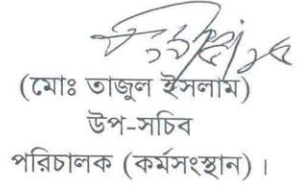 (মোঃ তাজুল ইসলাম)
উপ-সচিব
পরিচালক (কর্মসংস্থান)।